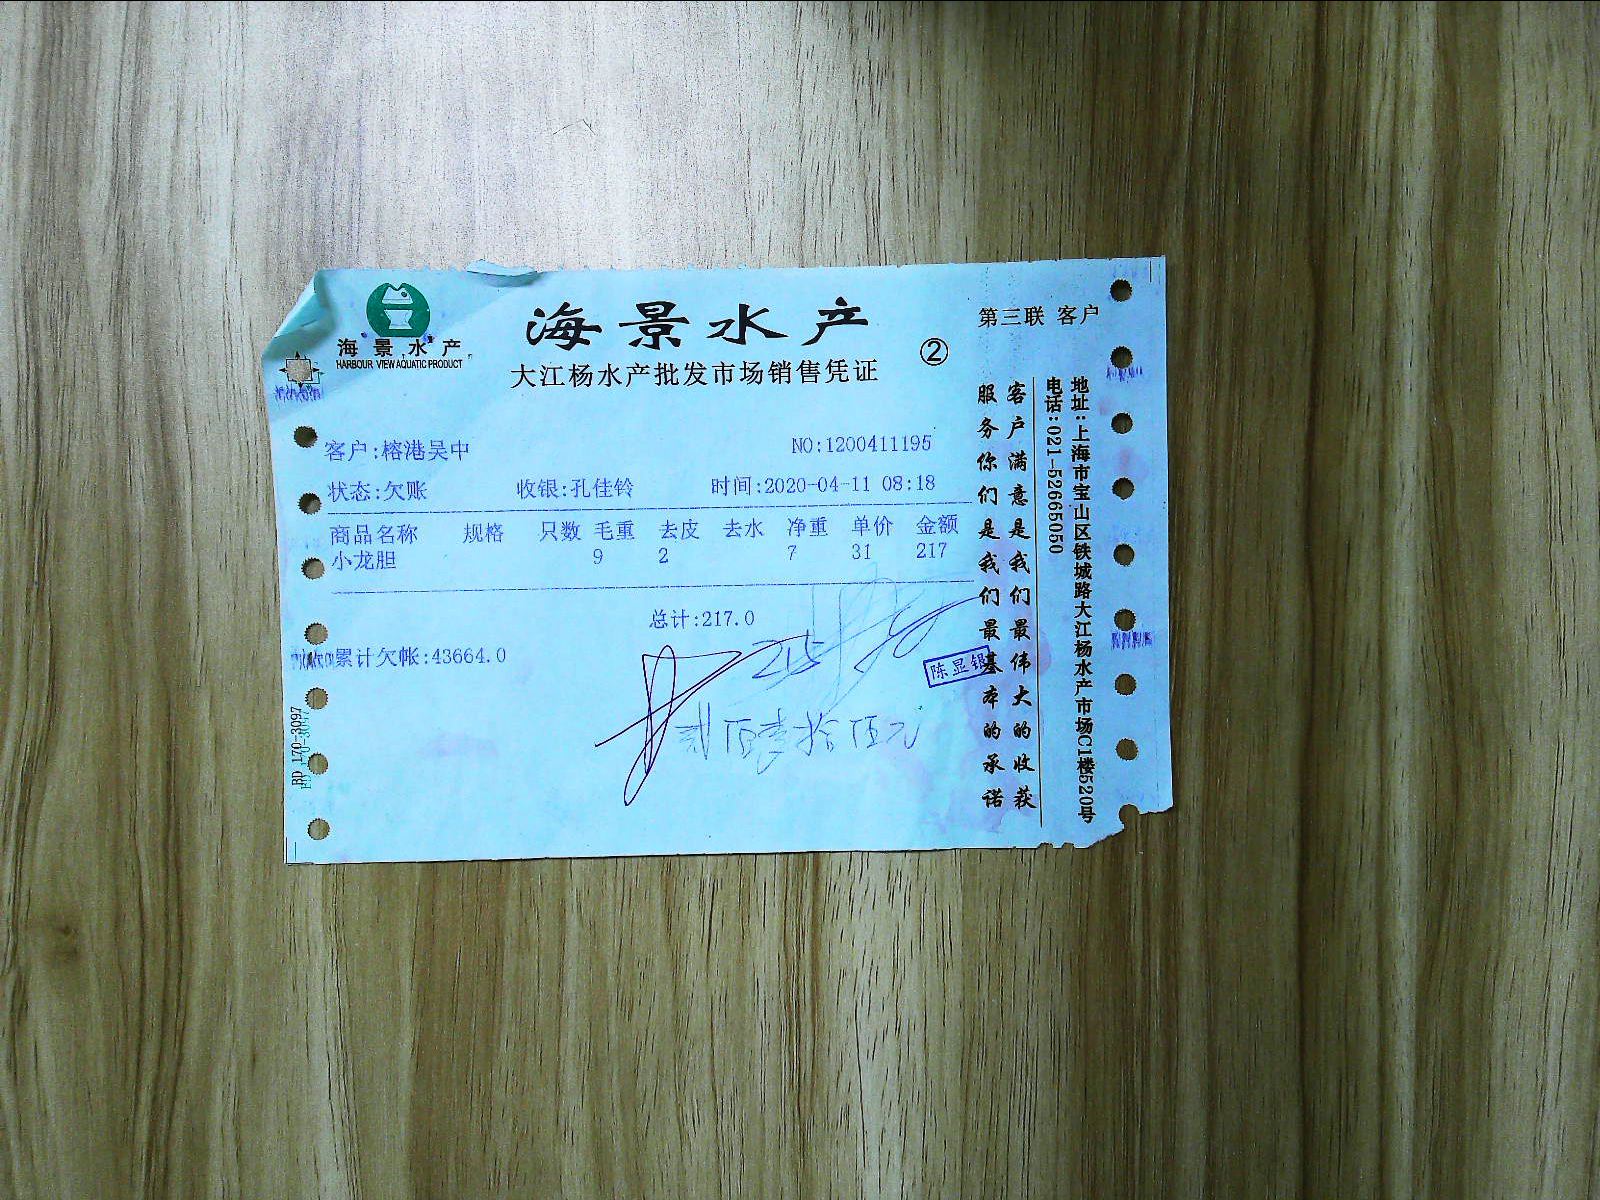 海景水产
HARBOUR VIEW AQUATIC PRODUCT
海景水产
大江杨水产批发市场销售凭证
②
第三联 客户
客户:榕港吴中
NO:1200411195
状态:欠账 收银:孔佳铃 时间:2020-04-11 08:18
商品名称 规格 只数 毛重 去皮 去水 净重 单价 金额
小龙胆 9 2 7 31 217
总计:217.0
累计欠帐:43664.0
215
贰佰壹拾伍元
陈显银
客户满意是我们最伟大的收获
服务你们是我们最基本的承诺
地址:上海市宝山区铁城路大江杨水产市场C1楼520号
电话:021-52665050
RD 170-3097